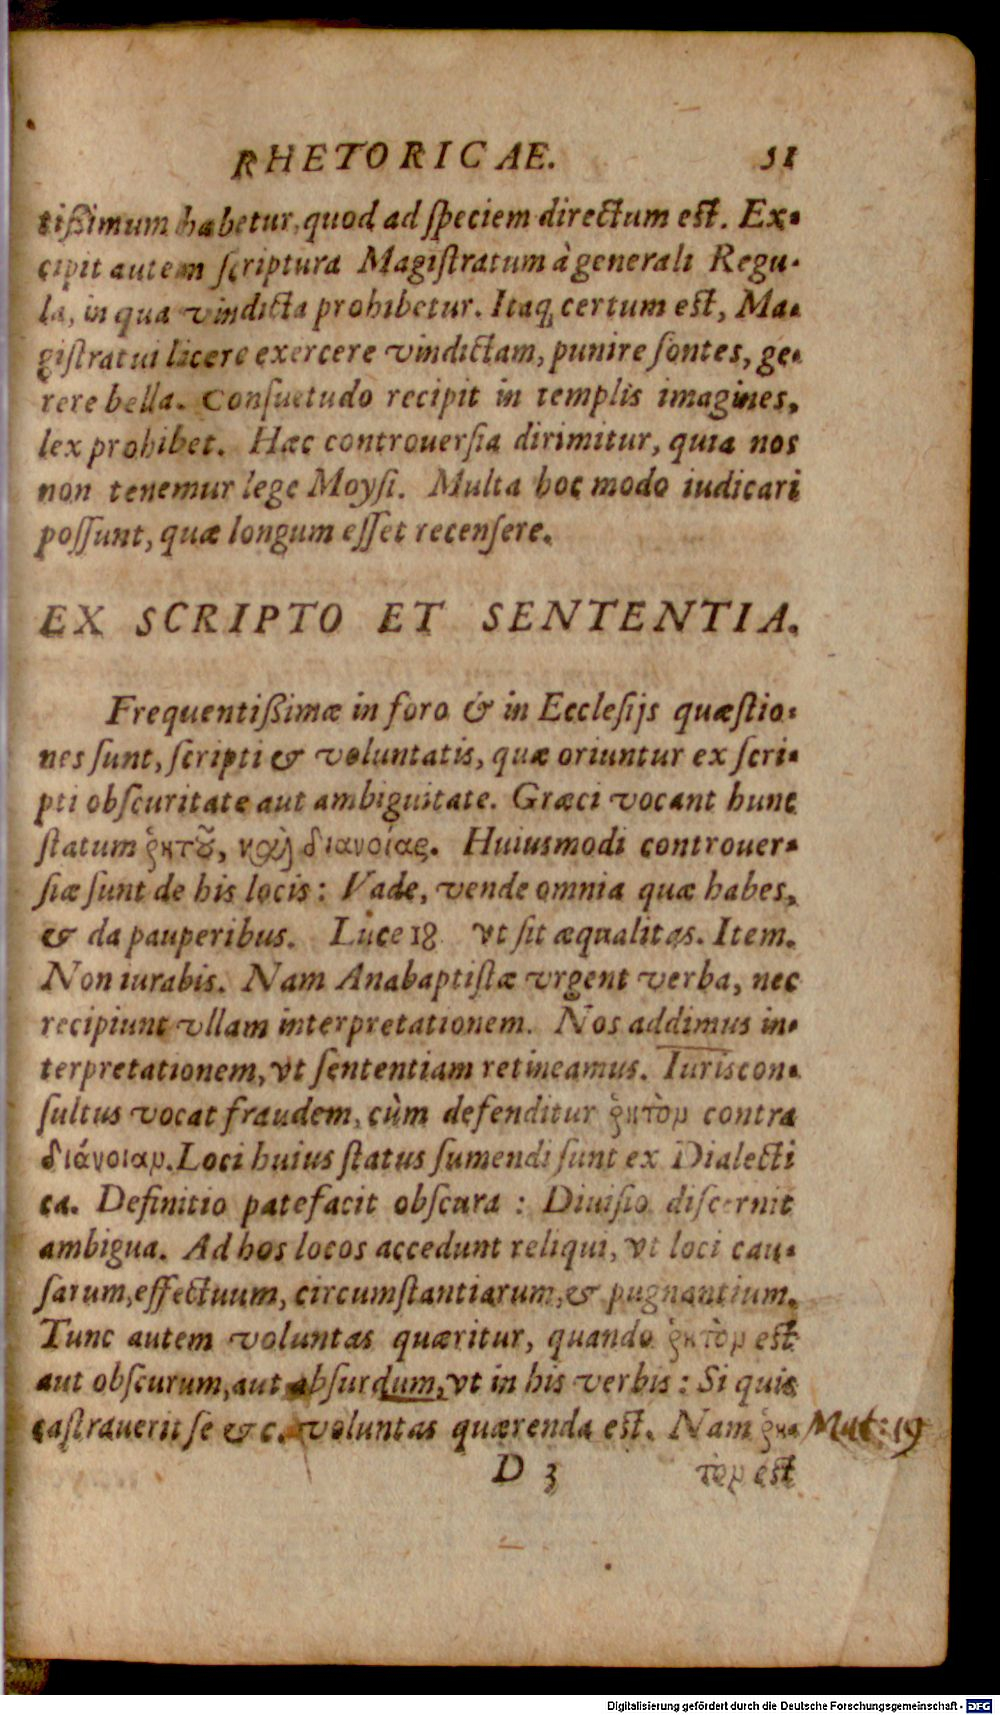 RHETORICAE. 51
tißimum habetur, quod ad speciem directum est. Ex-
cipit autem scriptura Magistratum à generali Regu-
la, in qua vindicta prohibetur. Itaq; certum est, Ma-
gistratui licere exercere vindictam, punire sontes, ge-
rere bella. Consuetudo recipit in templis imagines,
lex prohibet. Hæc controuersia dirimitur, quia nos
non tenemur lege Moysi. Multa hoc modo iudicari
possunt, quæ longum esset recensere.
EX SCRIPTO ET SENTENTIA.
Frequentißimæ in foro & in Ecclesijs quæstio-
nes sunt, scripti & voluntatis, quæ oriuntur ex scri-
pti obscuritate aut ambiguitate. Græci vocant hunc
statum ῥητοῦ, καὶ διανοίας. Huiusmodi controuer-
siæ sunt de his locis: Vade, vende omnia quæ habes,
& da pauperibus. Luce 18 vt sit æqualitas. Item.
Non iurabis. Nam Anabaptistæ vrgent verba, nec
recipiunt vllam interpretationem. Nos addimus in-
terpretationem, vt sententiam retineamus. Iuriscon-
sultus vocat fraudem, cùm defenditur ῥητὸν contra
διάνοιαν. Loci huius status sumendi sunt ex Dialecti
ca. Definitio patefacit obscura: Diuisio discernit
ambigua. Ad hos locos accedunt reliqui, vt loci cau-
sarum, effectuum, circumstantiarum, & pugnantium.
Tunc autem voluntas quæritur, quando ῥητὸν est
aut obscurum, aut absurdum, vt in his verbis: Si quis
castrauerit se &c. voluntas quærenda est. Nam ῥη- Mat: 19
D 3 τὸν est
Digitalisierung gefördert durch die Deutsche Forschungsgemeinschaft - DFG